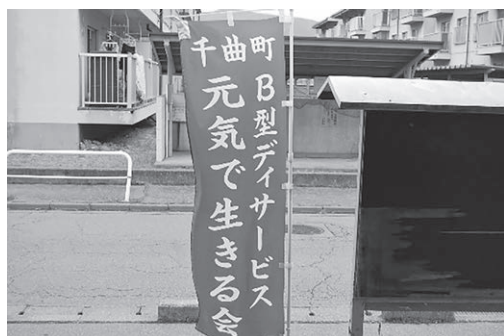 千曲町
B型ディサービス
元気で生きる会